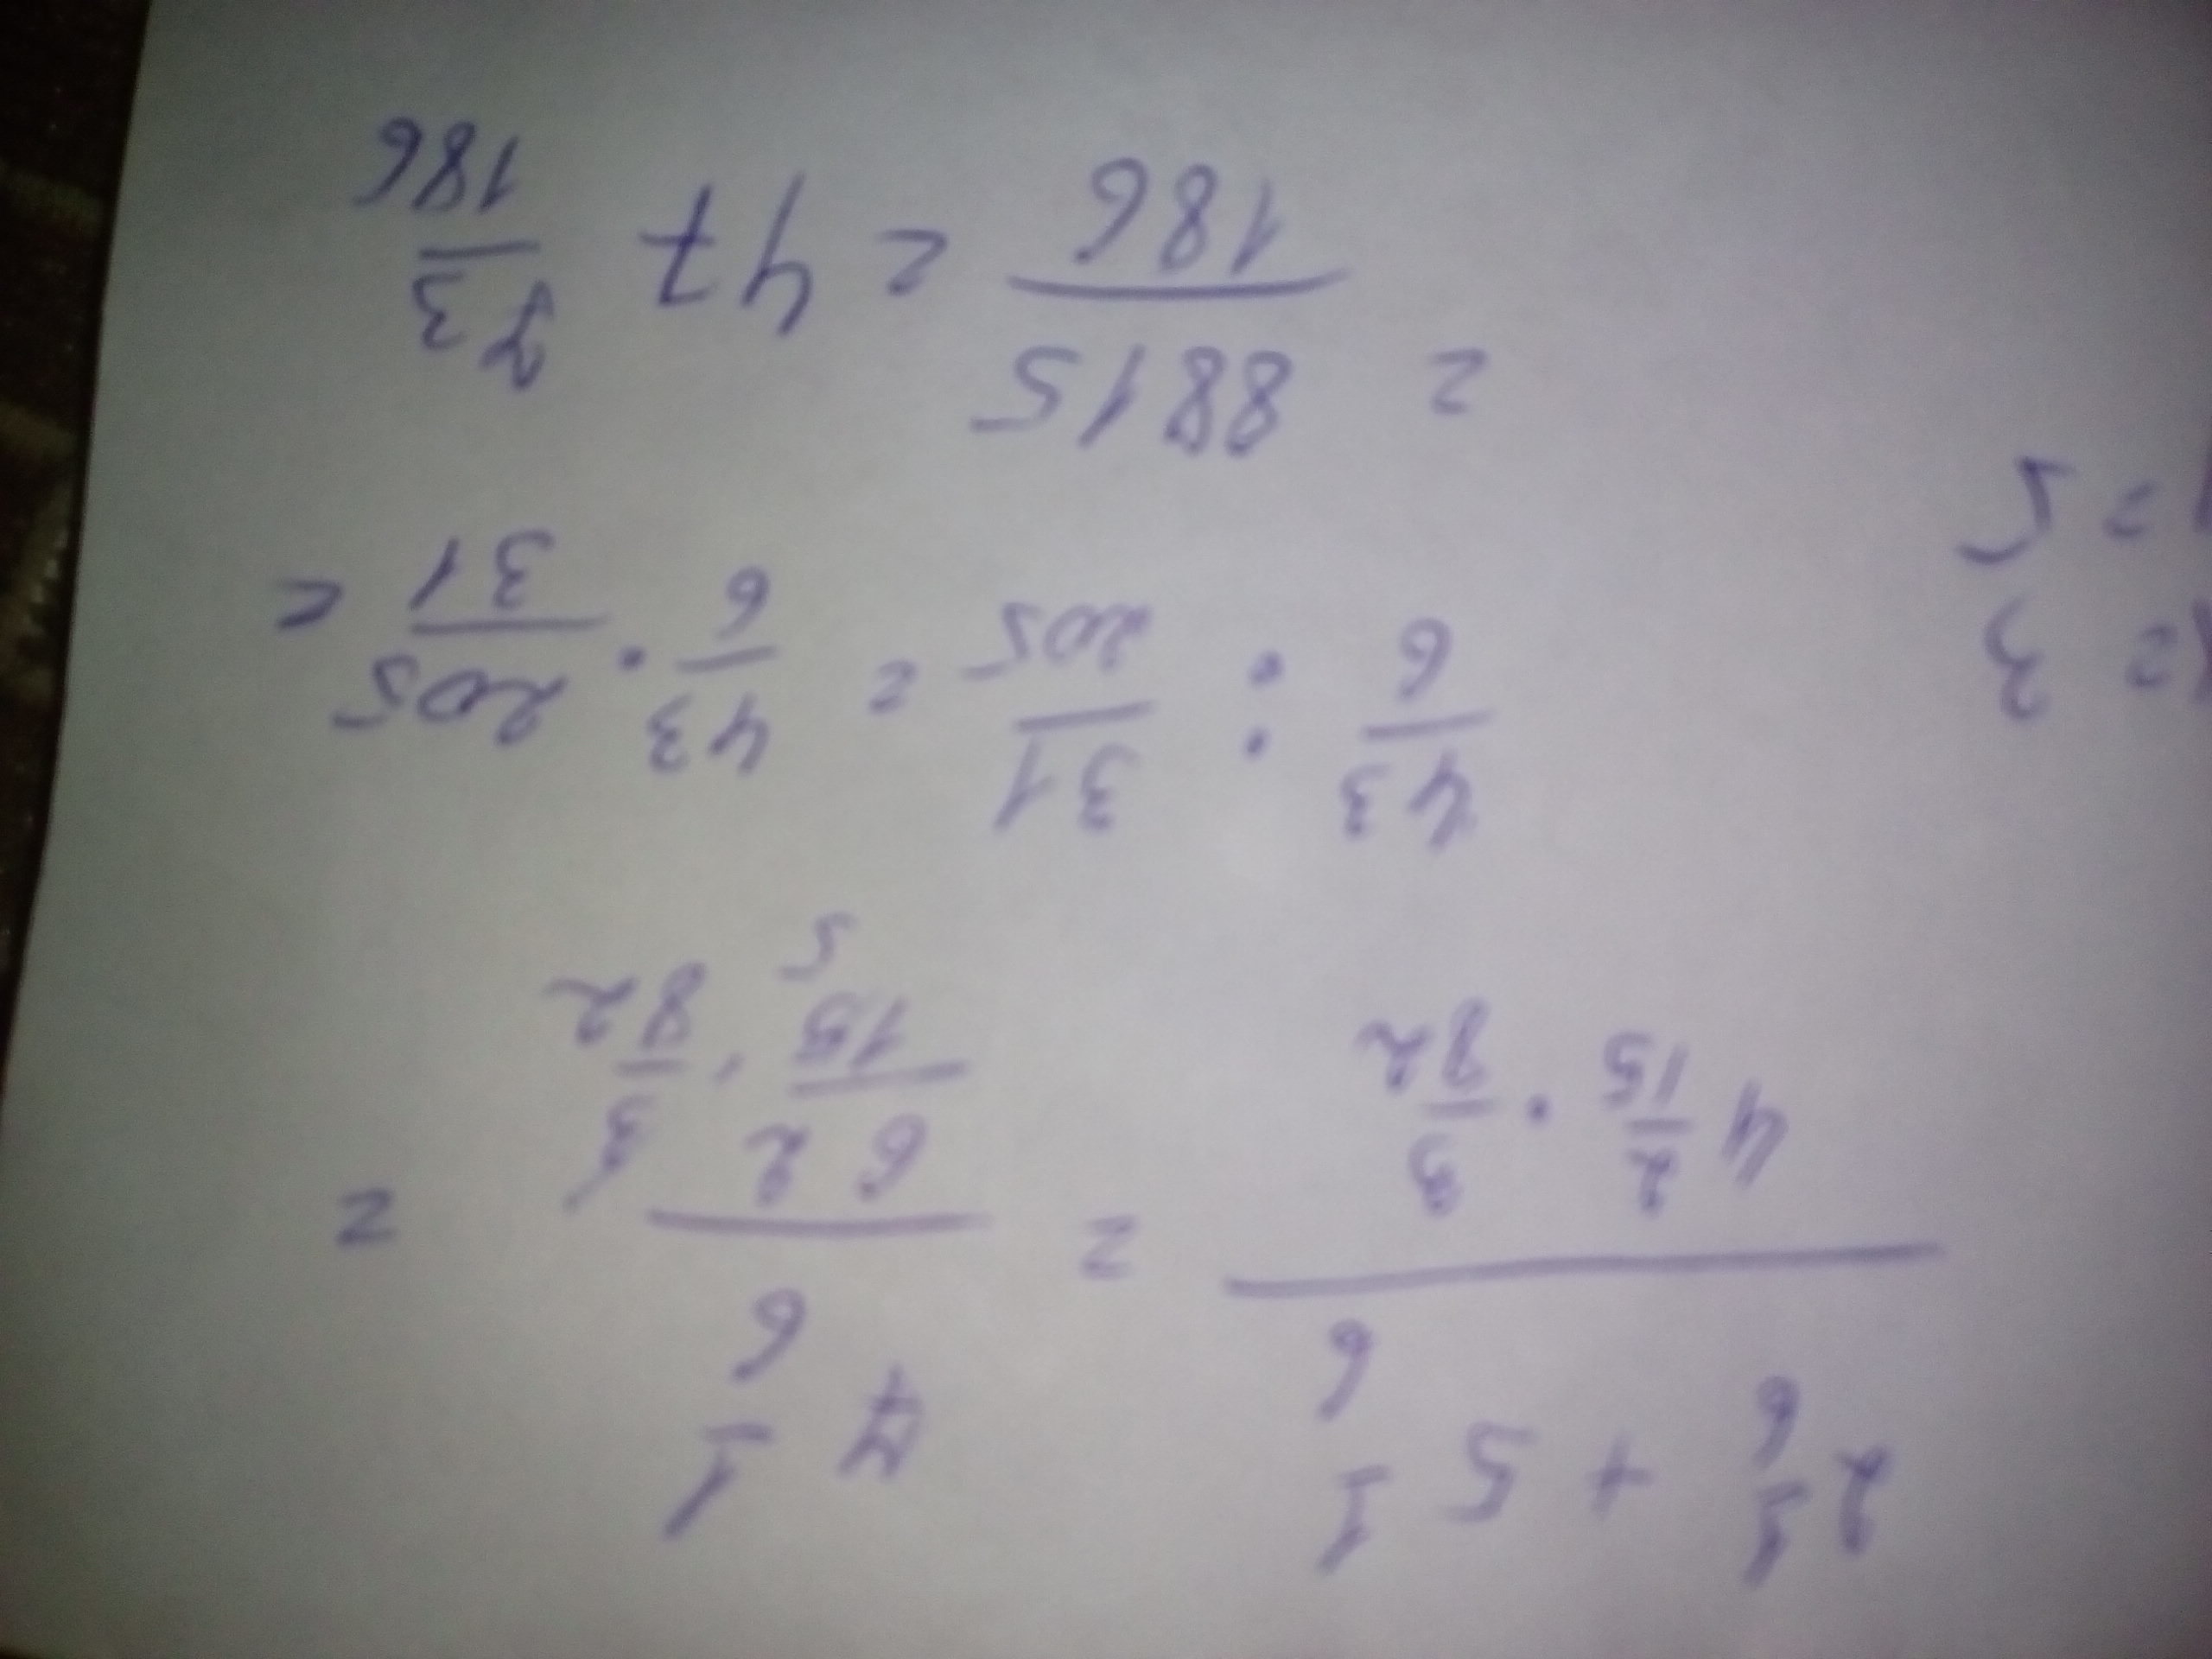 2 1/6 + 5 1/6 / 4 2/15 · 3/82 = 7 1/6 / 62/15 · 3/82 =
5
43/6 : 31/205 = 43/6 · 205/31 =
= 3
= 5
= 8815/186 = 47 73/186